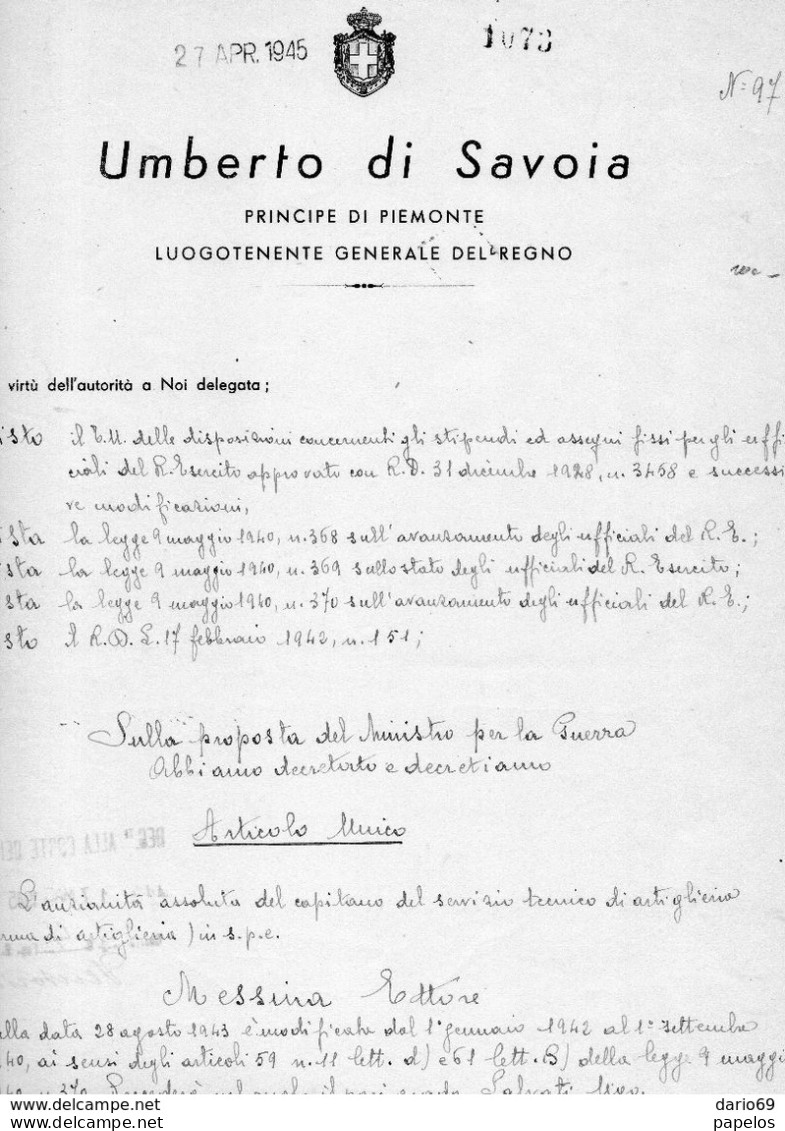 27 APR. 1945
1073
N: 97
Umberto di Savoia
PRINCIPE DI PIEMONTE
LUOGOTENENTE GENERALE DEL REGNO
virtù dell'autorità a Noi delegata;
isto il T.U. delle disposizioni concernenti gli stipendi ed assegni fissi per gli uffi
ciali del R. Esercito approvato con R.D. 31 dicembre 1928, n. 3458 e successi
ve modificazioni,
sta la legge 9 maggio 1940, n. 368 sull'avanzamento degli ufficiali del R.E.;
sta la legge 9 maggio 1940, n. 369 sullo stato degli ufficiali del R. Esercito;
sta la legge 9 maggio 1940, n. 370 sull'avanzamento degli ufficiali del R.E.;
sto il R.D.L. 17 febbraio 1942, n. 151;
Sulla proposta del Ministro per la Guerra
Abbiamo decretato e decretiamo
Articolo Unico
L'anzianità assoluta del capitano del servizio tecnico di artiglieria
rma di artiglieria) in s.p.e.
Messina Ettore
alla data 28 agosto 1943 è modificata dal 1° gennaio 1942 al 1° settembre
40, ai sensi degli articoli 59 n. 11 lett. d) e 61 lett. B) della legge 9 maggio
n. 370
dario69
papelos